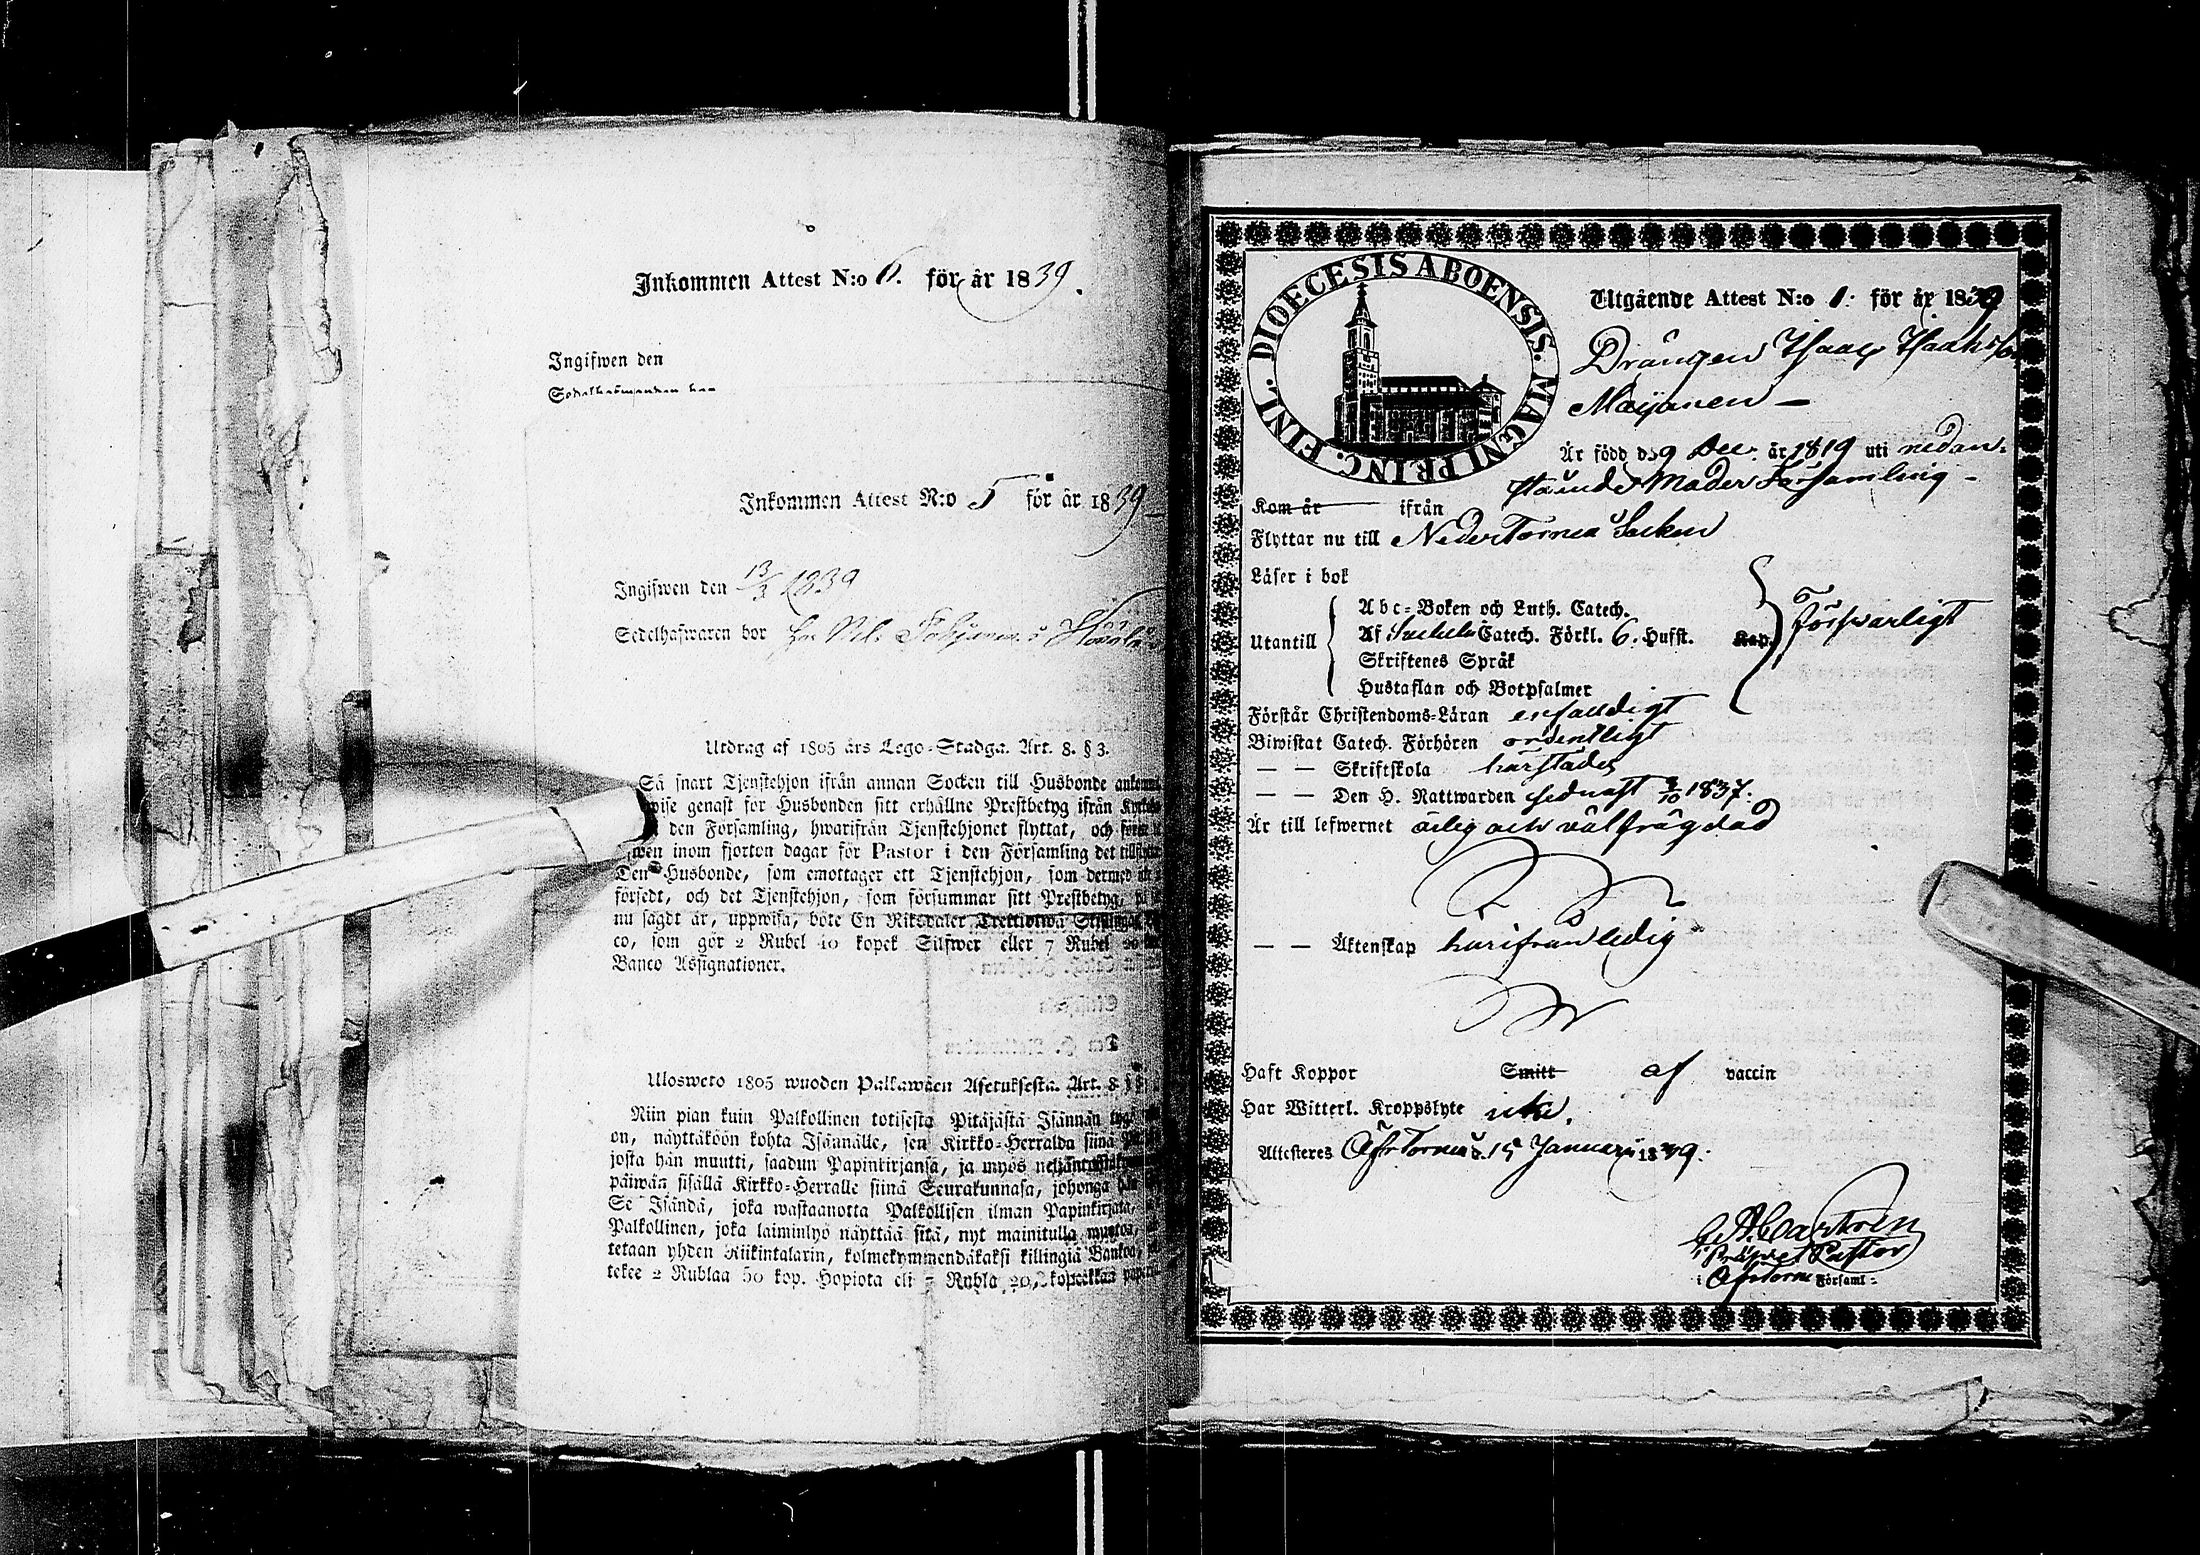 Inkommen Attest N:o 6. för år 1839.
Ingifwen den
Inkommen Attest N:o 5 för år 1839
Ingifwen den 13/3 1839
Sedelhafwaren bor hos
Utdrag af 1805 års Lego-Stadga. Art. 8. § 3.
Så snart Tjenstehjon ifrån annan Socken till Husbonde
genast för Husbonden sitt erhållne Prestbetyg ifrån
den Församling, hwarifrån Tjenstehjonet flyttat, och
inom fjorton dagar för Pastor i den Församling det
Den Husbonde, som emottager ett Tjenstehjon, som dermed
försedt, och det Tjenstehjon, som försummar sitt Prestbetyg,
nu sagdt är, uppwisa, böte En Riksdaler Trettiotwå
co, som gör 2 Rubel 40 kopek Silfwer eller 7 Rubel 20
Banco Assignationer.
Ulosweto 1805 wuoden Palkawäen Asetuksesta. Art. 8 §
Niin pian kuin Palkollinen toisesta Pitäjästä Isännän
on, näyttäköön kohta Isännälle, sen Kirkko-Herralda siinä
josta hän muutti, saadun Papinkirjansa, ja myös
päiwän sisällä Kirkko-Herralle siinä Seurakunnasa, johonga
Se Isändä, joka wastaanotta Palkollisen ilman Papinkirjata,
Palkollinen, joka laiminlyö näyttää sitä, nyt mainitulla muotoa,
tetaan yhden Riikintalarin, kolmekymmendäkaksi killingiä Bankoa,
tekee 2 Rublaa 50 kop. Hopiota eli 7 Rubla 20 kopeekkaa
DIOECESIS ABOENSIS. MAGNI PRINC. FINL.
Utgående Attest N:o 1. för år 1839
Drängen Isaac Isaksson
Maijanen –
Är född d. 9 Dec. år 1819 uti nedan-
stående Moder Församling –
Kom år ifrån
Flyttar nu till Neder Torneå Socken
Läser i bok
Utantill
Abc-Boken och Luth. Catech.
Af Catech. Förkl. 6. Hufst. Kap.
Skriftenes Språk
Hustaflan och Botpsalmer
Förswarligt
Förstår Christendoms-Läran enfaldigt
Biwistat Catech. Förhören ordentligt
— — Skriftskola härstädes
— — Den H. Nattwarden sednast 8/10 1837.
Är till lefwernet ärlig och välfrägdad
— — Äktenskap härifrån ledig
Haft Koppor Smitt af vaccin
Har Witterl. Kroppslyte icke.
Attesteres Öfr Torneå d. 15 Januarii 1839.
Castrén
Pastor
i Öfr Torne Församl: